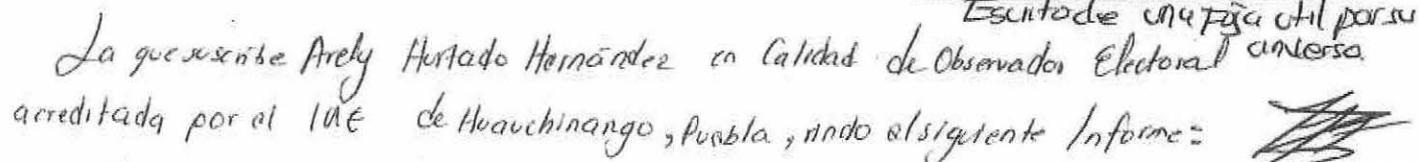 Escrito de una Foja util por su
anverso.
La que suscribe Arely Hurtado Hernández en Calidad de Observador Electoral
acreditada por el INE de Huauchinango, Puebla, rindo el siguiente Informe: